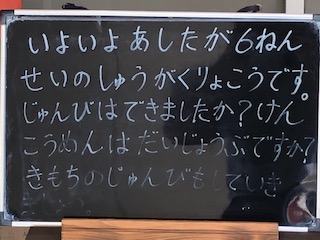 いよいよあしたが6ねん
せいのしゅうがくりょこうです。
じゅんびはできましたか?けん
こうめんはだいじょうぶですか?
きもちのじゅんびもしていき